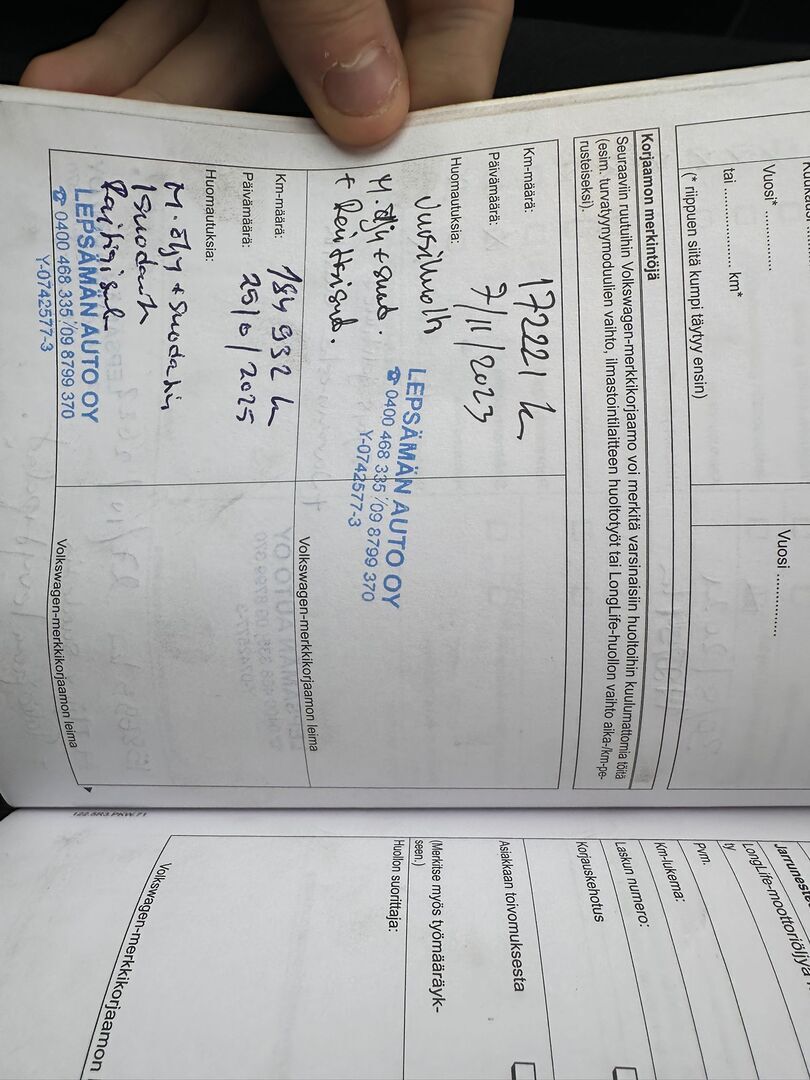 Vuosi* ..............
tai ................ km*
(* riippuen siitä kumpi täytyy ensin)
Vuosi ..............
Korjaamon merkintöjä
Seuraaviin ruutuihin Volkswagen-merkkikorjaamo voi merkitä varsinaisiin huoltoihin kuulumattomia töitä
(esim. turvatyynymoduulien vaihto, ilmastointilaitteen huoltotyöt tai LongLife-huollon vaihto aika-/km-pe-
rusteiseksi).
Km-määrä: 172221 k
Päivämäärä: 9/11/2023
Huomautuksia:
M. öljy + suod.
LEPSÄMÄN AUTO OY
☎ 0400 468 335 / 09 8799 370
Y-0742577-3
Volkswagen-merkkikorjaamon leima
Km-määrä: 184 932 k
Päivämäärä:
Huomautuksia:
M. öljy + suodatin
LEPSÄMÄN AUTO OY
☎ 0400 468 335 / 09 8799 370
Y-0742577-3
Volkswagen-merkkikorjaamon leima
122.5R3.PKW.71
LongLife-moottoriöljyä
ty
Pvm.
Km-lukema:
Laskun numero:
Korjauskehotus
Asiakkaan toivomuksesta
(Merkitse myös työmääräyk-
seen.)
Huollon suorittaja:
Volkswagen-merkkikorjaamon